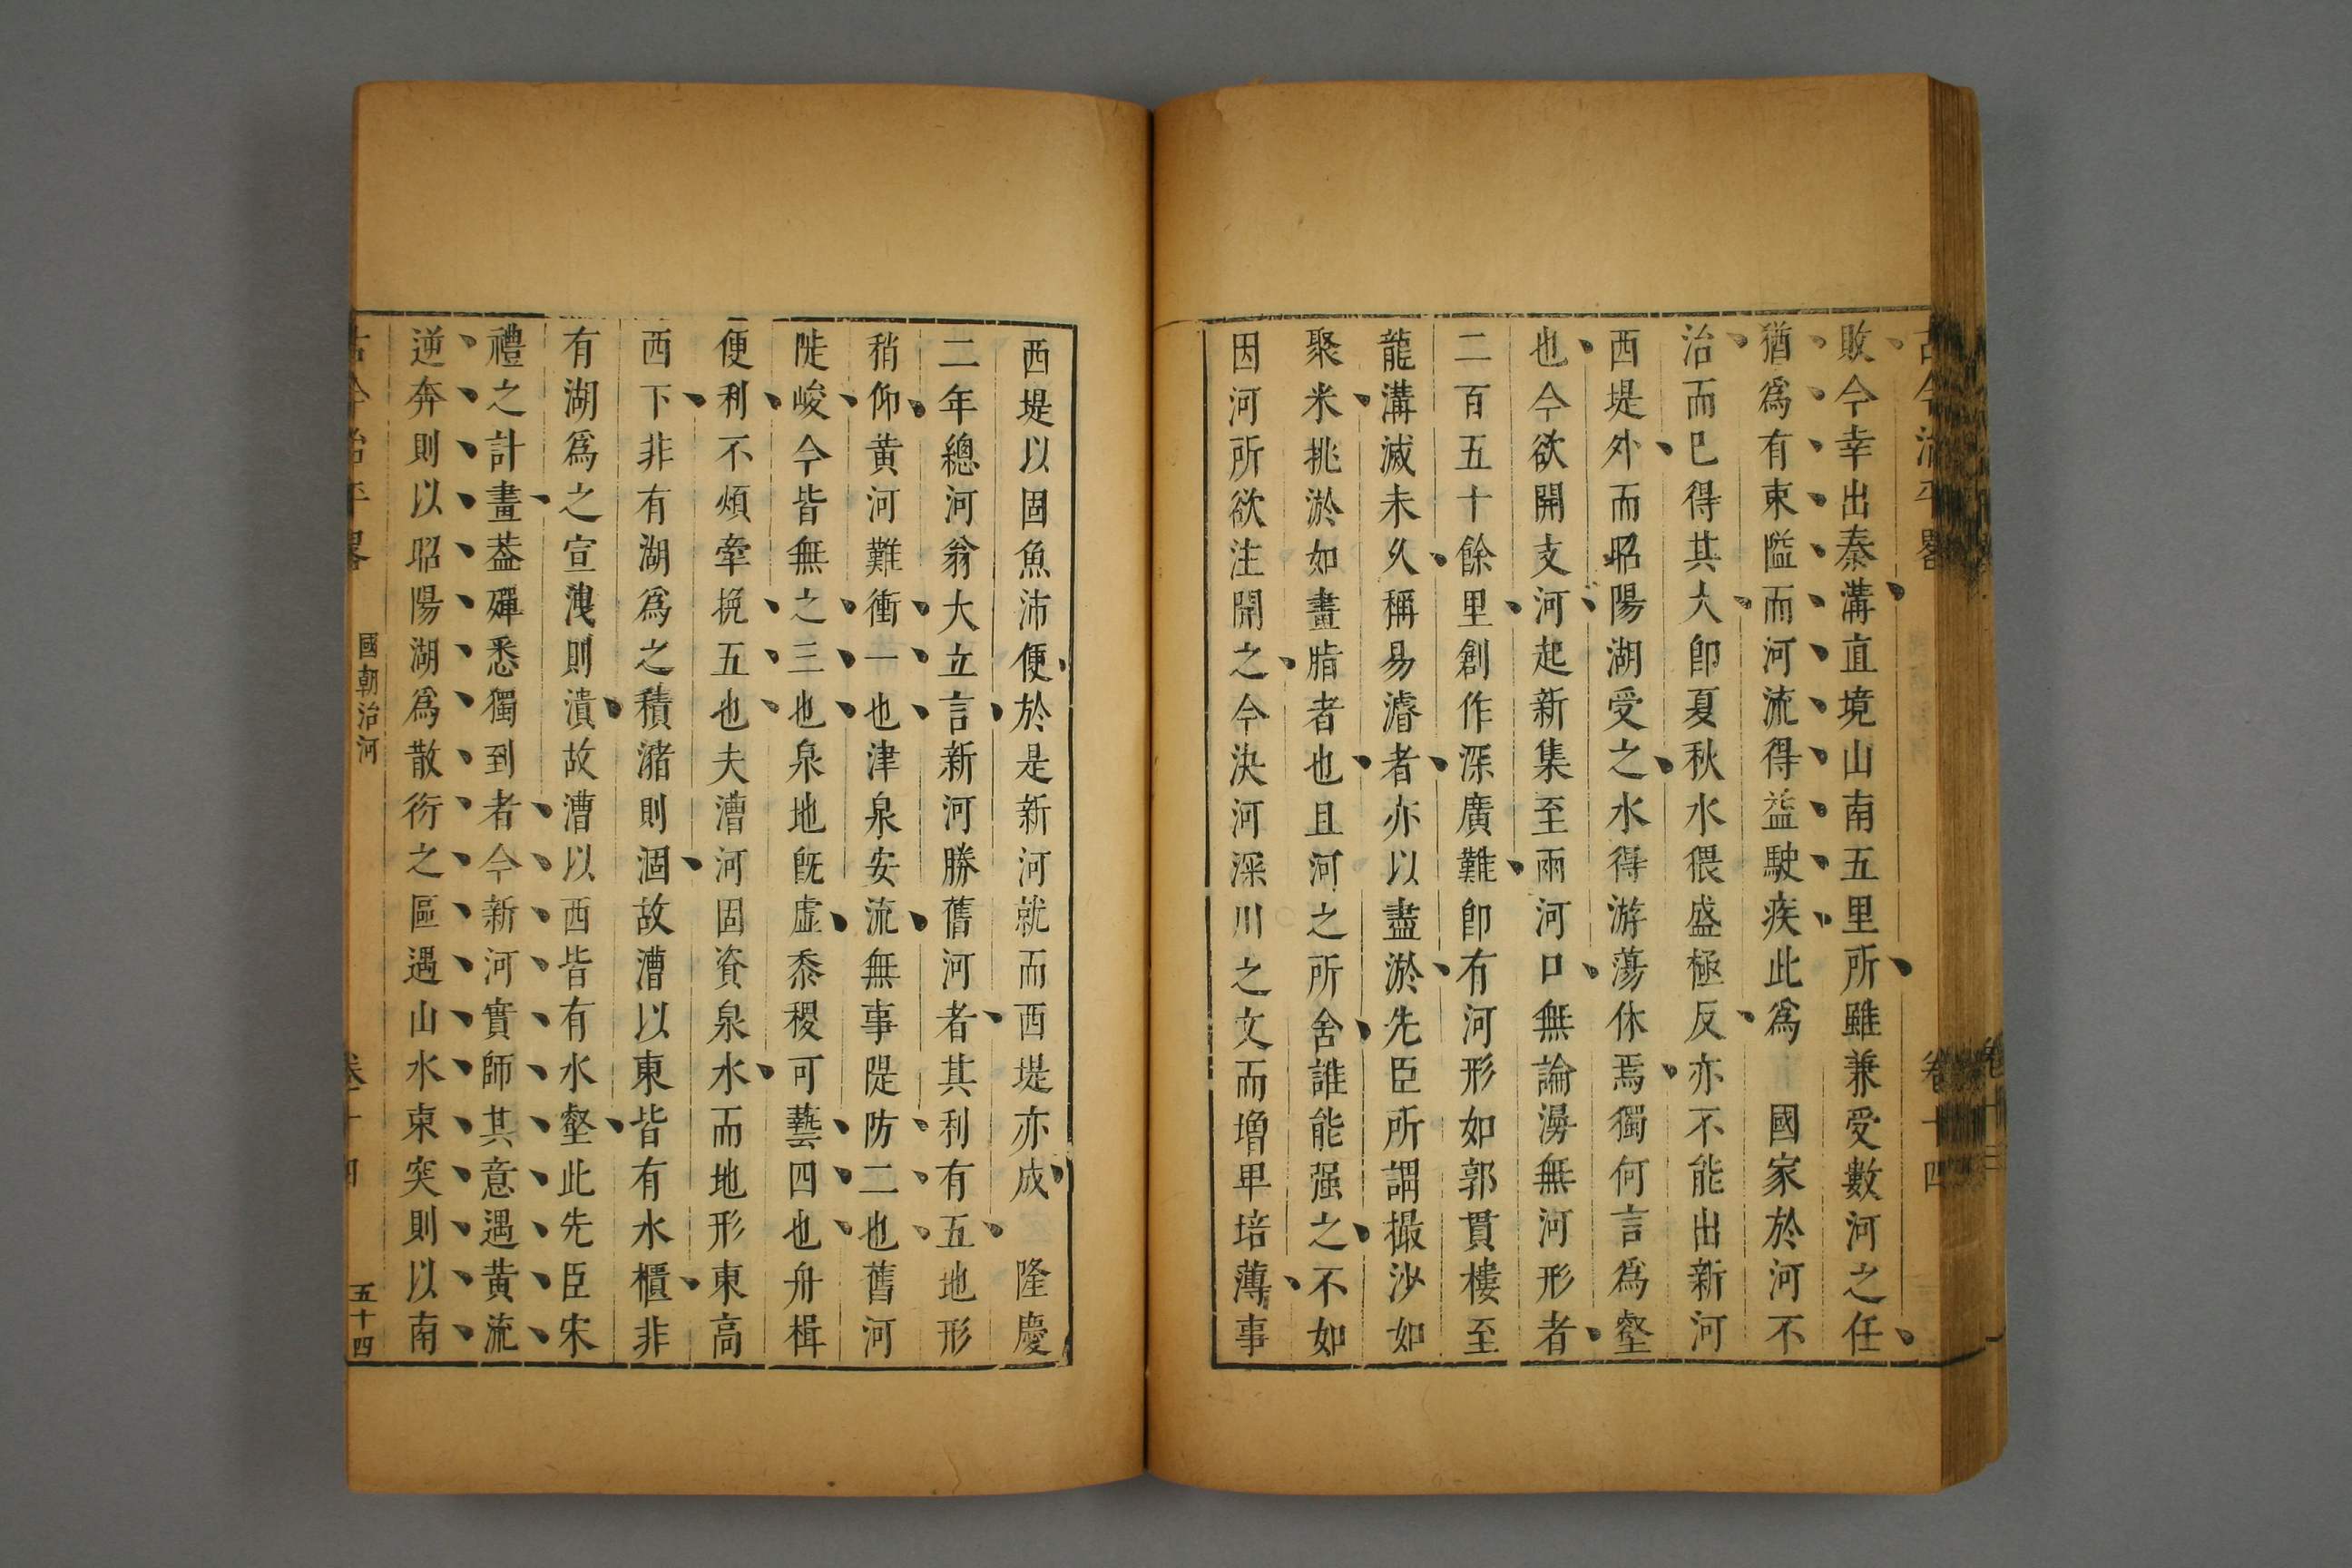 古今治平畧 卷十四
敗今幸出秦溝直境山南五里所雖兼受數河之任
猶爲有東隘而河流得益駛疾此爲 國家於河不
治而已得其大卽夏秋水猥盛極反亦不能出新河
西堤外而昭陽湖受之水得游蕩休焉獨何言爲壑
也今欲開支河起新集至兩河口無論澇無河形者
二百五十餘里創作深廣難卽有河形如郭貫樓至
龍溝滅未久稱易濬者亦以盡淤先臣所謂撮沙如
聚米挑淤如畫脂者也且河之所舍誰能强之不如
因河所欲注開之今決河深川之文而增卑培薄事
西堤以固魚沛便於是新河就而西堤亦成 隆慶
二年總河翁大立言新河勝舊河者其利有五地形
稍仰黃河難衝一也津泉安流無事隄防二也舊河
陡峻今皆無之三也泉地旣虛黍稷可藝四也舟楫
便利不煩牽挽五也夫漕河固資泉水而地形東高
西下非有湖爲之積瀦則涸故漕以東皆有水櫃非
有湖爲之宣洩則潰故漕以西皆有水壑此先臣宋
禮之計畫葢殫悉獨到者今新河實師其意遇黃流
逆奔則以昭陽湖爲散衍之區遇山水東突則以南
古今治平畧 國朝治河 卷十四 五十四